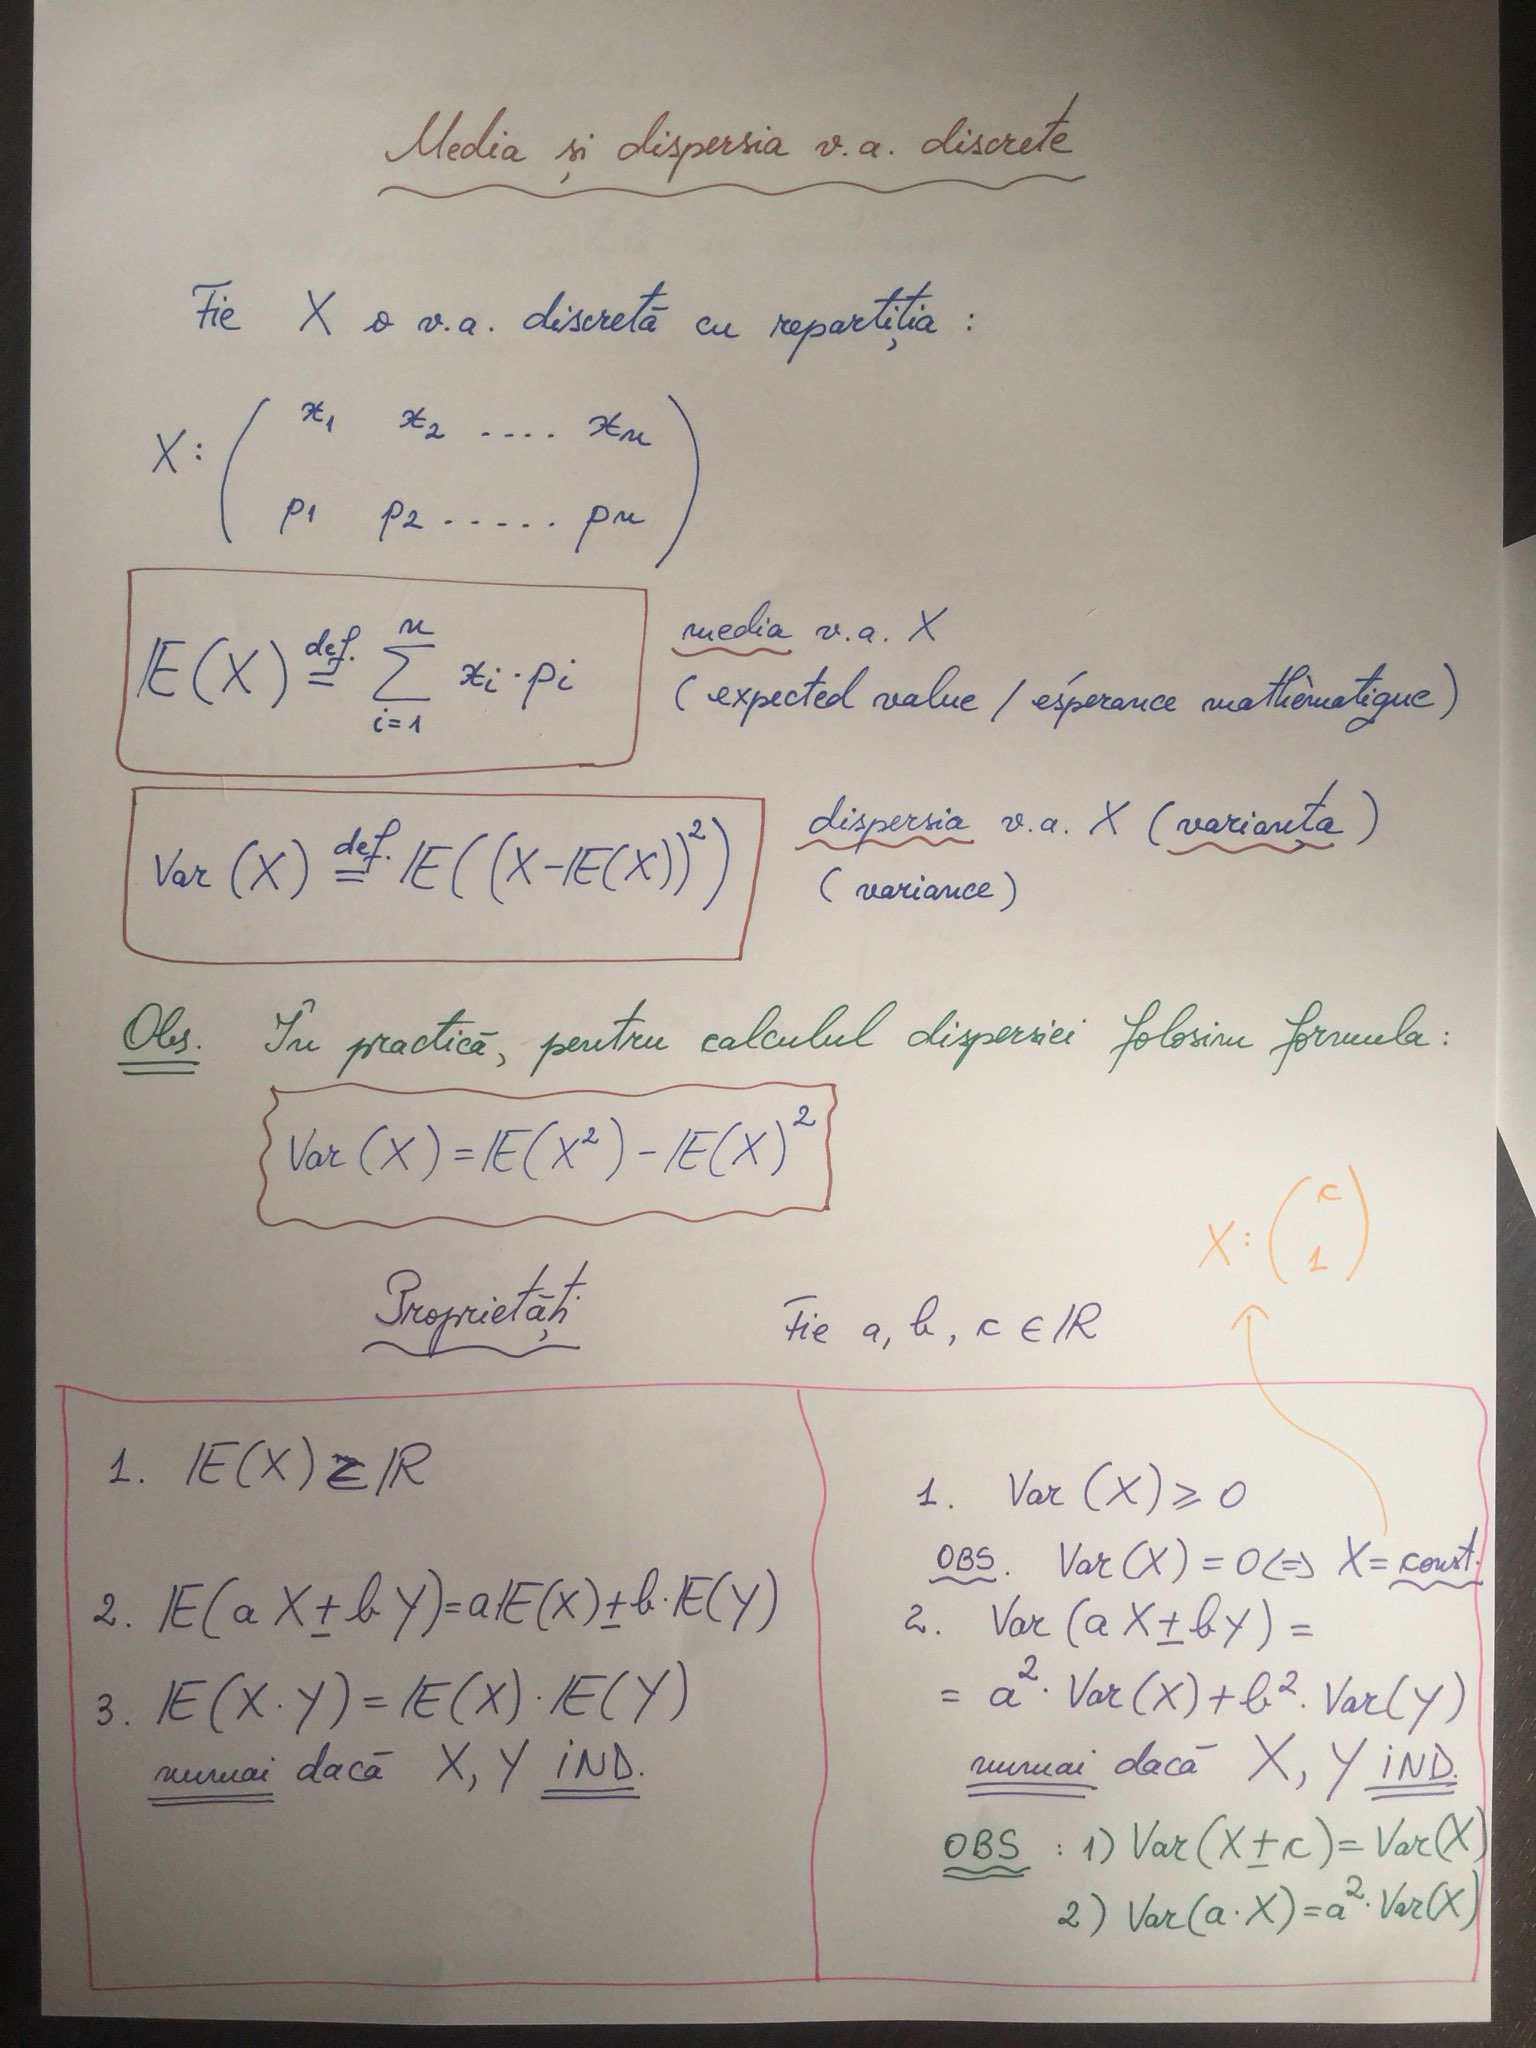 Media și dispersia v.a. discrete
Fie X o v.a. discretă cu repartiția :
X: ( x₁ x₂ .... xₙ
p₁ p₂ ...... pₙ )
𝔼(X) def. = ∑ i=1 n xᵢ · pᵢ
media v.a. X
(expected value / ésperance mathèmatique)
Var (X) def. = 𝔼((X-𝔼(X))²)
dispersia v.a. X (varianța)
(variance)
Obs. În practică, pentru calculul dispersiei folosim formula :
Var (X) = 𝔼(X²) - 𝔼(X)²
X: ( c
1 )
Proprietăți Fie a, b, c ∈ ℝ
1. 𝔼(X) ∈ ℝ
2. 𝔼(a X ± b Y) = a 𝔼(X) ± b · 𝔼(Y)
3. 𝔼(X · Y) = 𝔼(X) · 𝔼(Y)
numai dacă X, Y IND.
1. Var (X) ⩾ 0
OBS. Var (X) = 0 (=) X = const.
2. Var (a X ± b Y) =
= a² · Var (X) + b² · Var (Y)
numai dacă X, Y IND.
OBS : 1) Var (X ± c) = Var (X)
2) Var (a · X) = a² · Var (X)